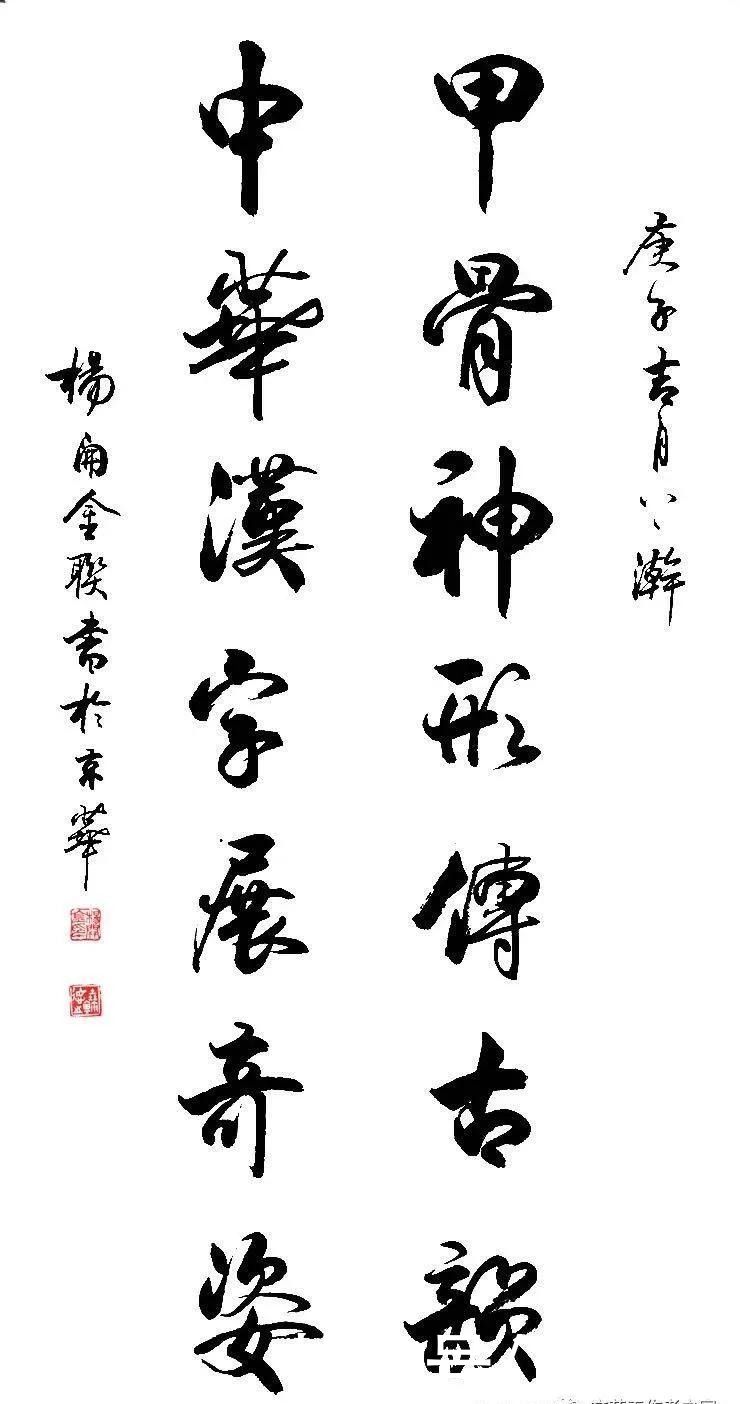 庚子吉月下澣
甲骨神形傳古韻
中華漢字展奇姿
楊金聯書於京華